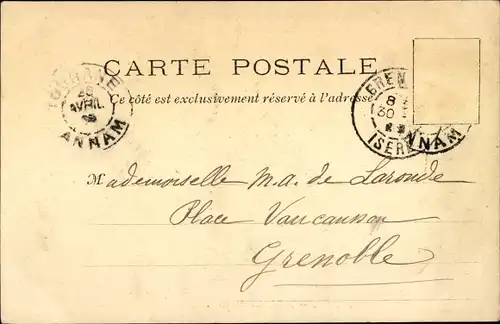 CARTE POSTALE
Ce côté est exclusivement réservé à l'adresse
TOURANE
26
AVRIL
ANNAM
GREN
8
30
ISÈRE
NNAM
Mademoiselle M.A. de Laronde
Place Vaucanson
Grenoble